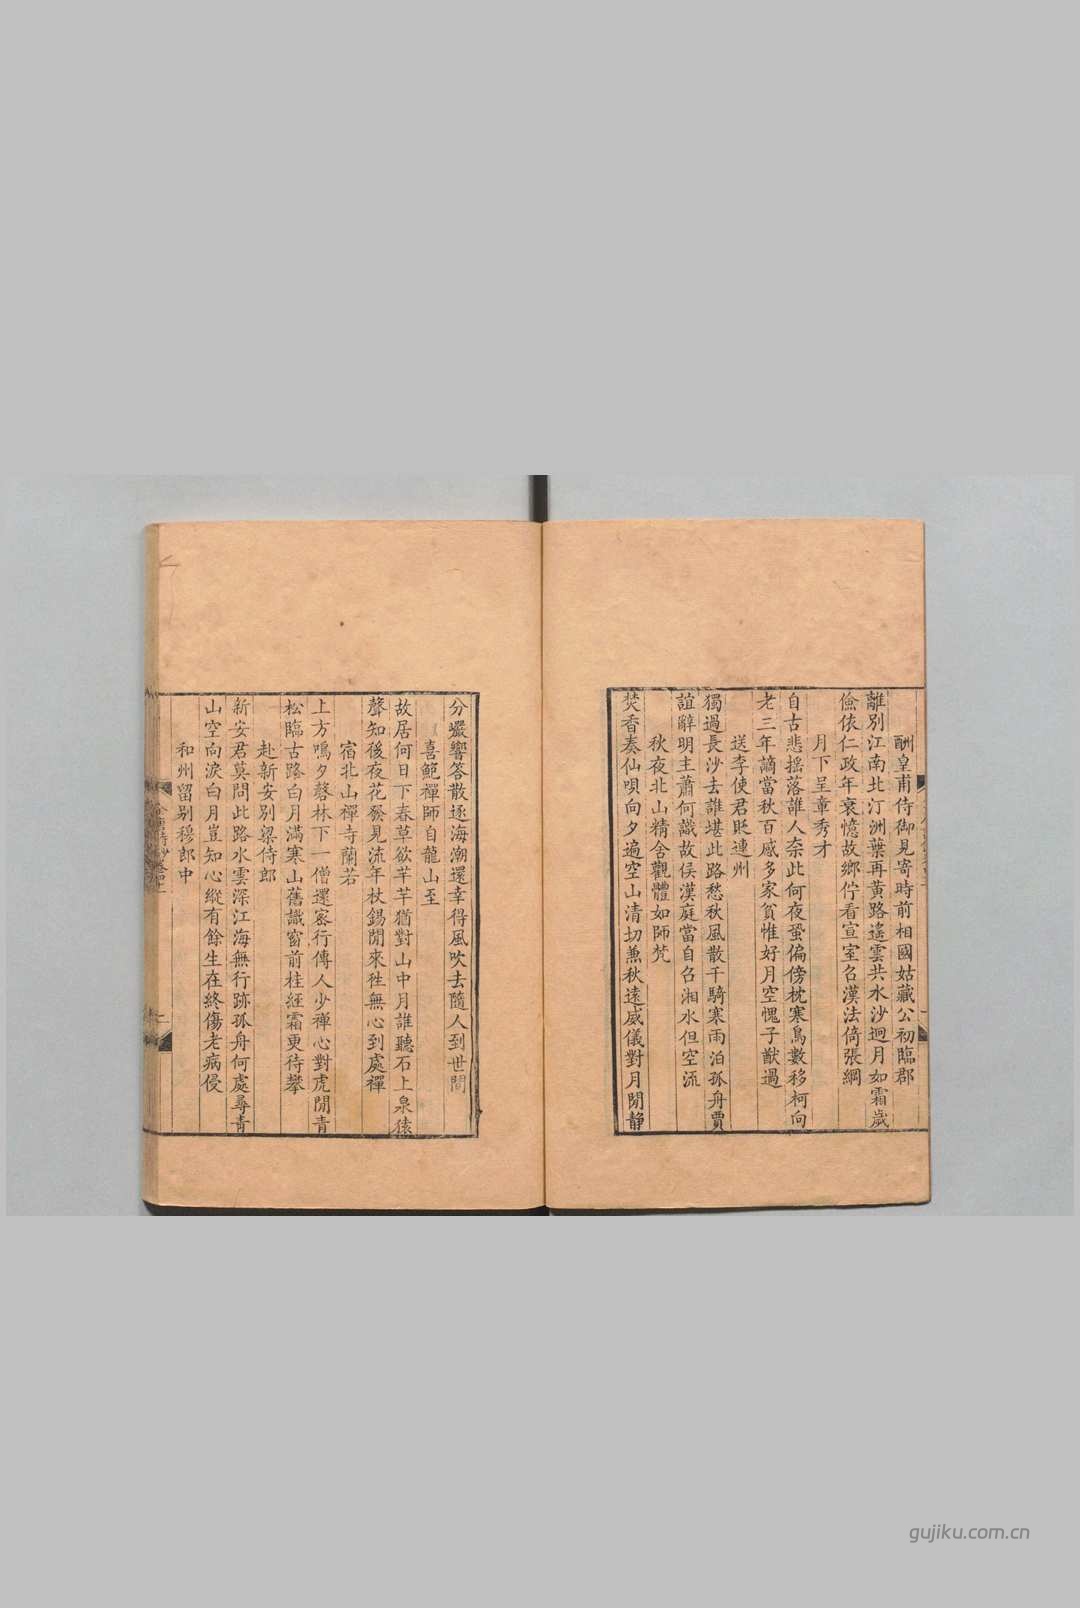 酬皇甫侍御見寄時前相國姑藏公初臨郡
離別江南北汀洲葉再黃路遙雲共水沙迴月如霜歲
儉依仁政年衰憶故鄉佇看宣室召漢法倚張綱
月下呈章秀才
自古悲搖落誰人奈此何夜蛩偏傍枕寒鳥數移柯向
老三年謫當秋百感多家貧惟好月空愧子猷過
送李使君貶連州
獨過長沙去誰堪此路愁秋風散千騎寒雨泊孤舟賈
誼辭明主蕭何識故侯漢庭當自召湘水但空流
秋夜北山精舍觀體如師梵
焚香奏仙唄向夕遍空山清切兼秋遠威儀對月閒靜
分巖響答散逐海潮還幸得風吹去隨人到世間
喜鮑禪師自龍山至
故居何日下春草欲芊芊猶對山中月誰聽石上泉猿
聲知後夜花發見流年杖錫閒來往無心到處禪
宿北山禪寺蘭若
上方鳴夕磬林下一僧還密行傳人少禪心對虎閒青
松臨古路白月滿寒山舊識窗前桂經霜更待攀
赴新安別梁侍郎
新安君莫問此路水雲深江海無行跡孤舟何處尋青
山空向淚白月豈知心縱有餘生在終傷老病侵
和州留別穆郎中
二
gujiku.com.cn